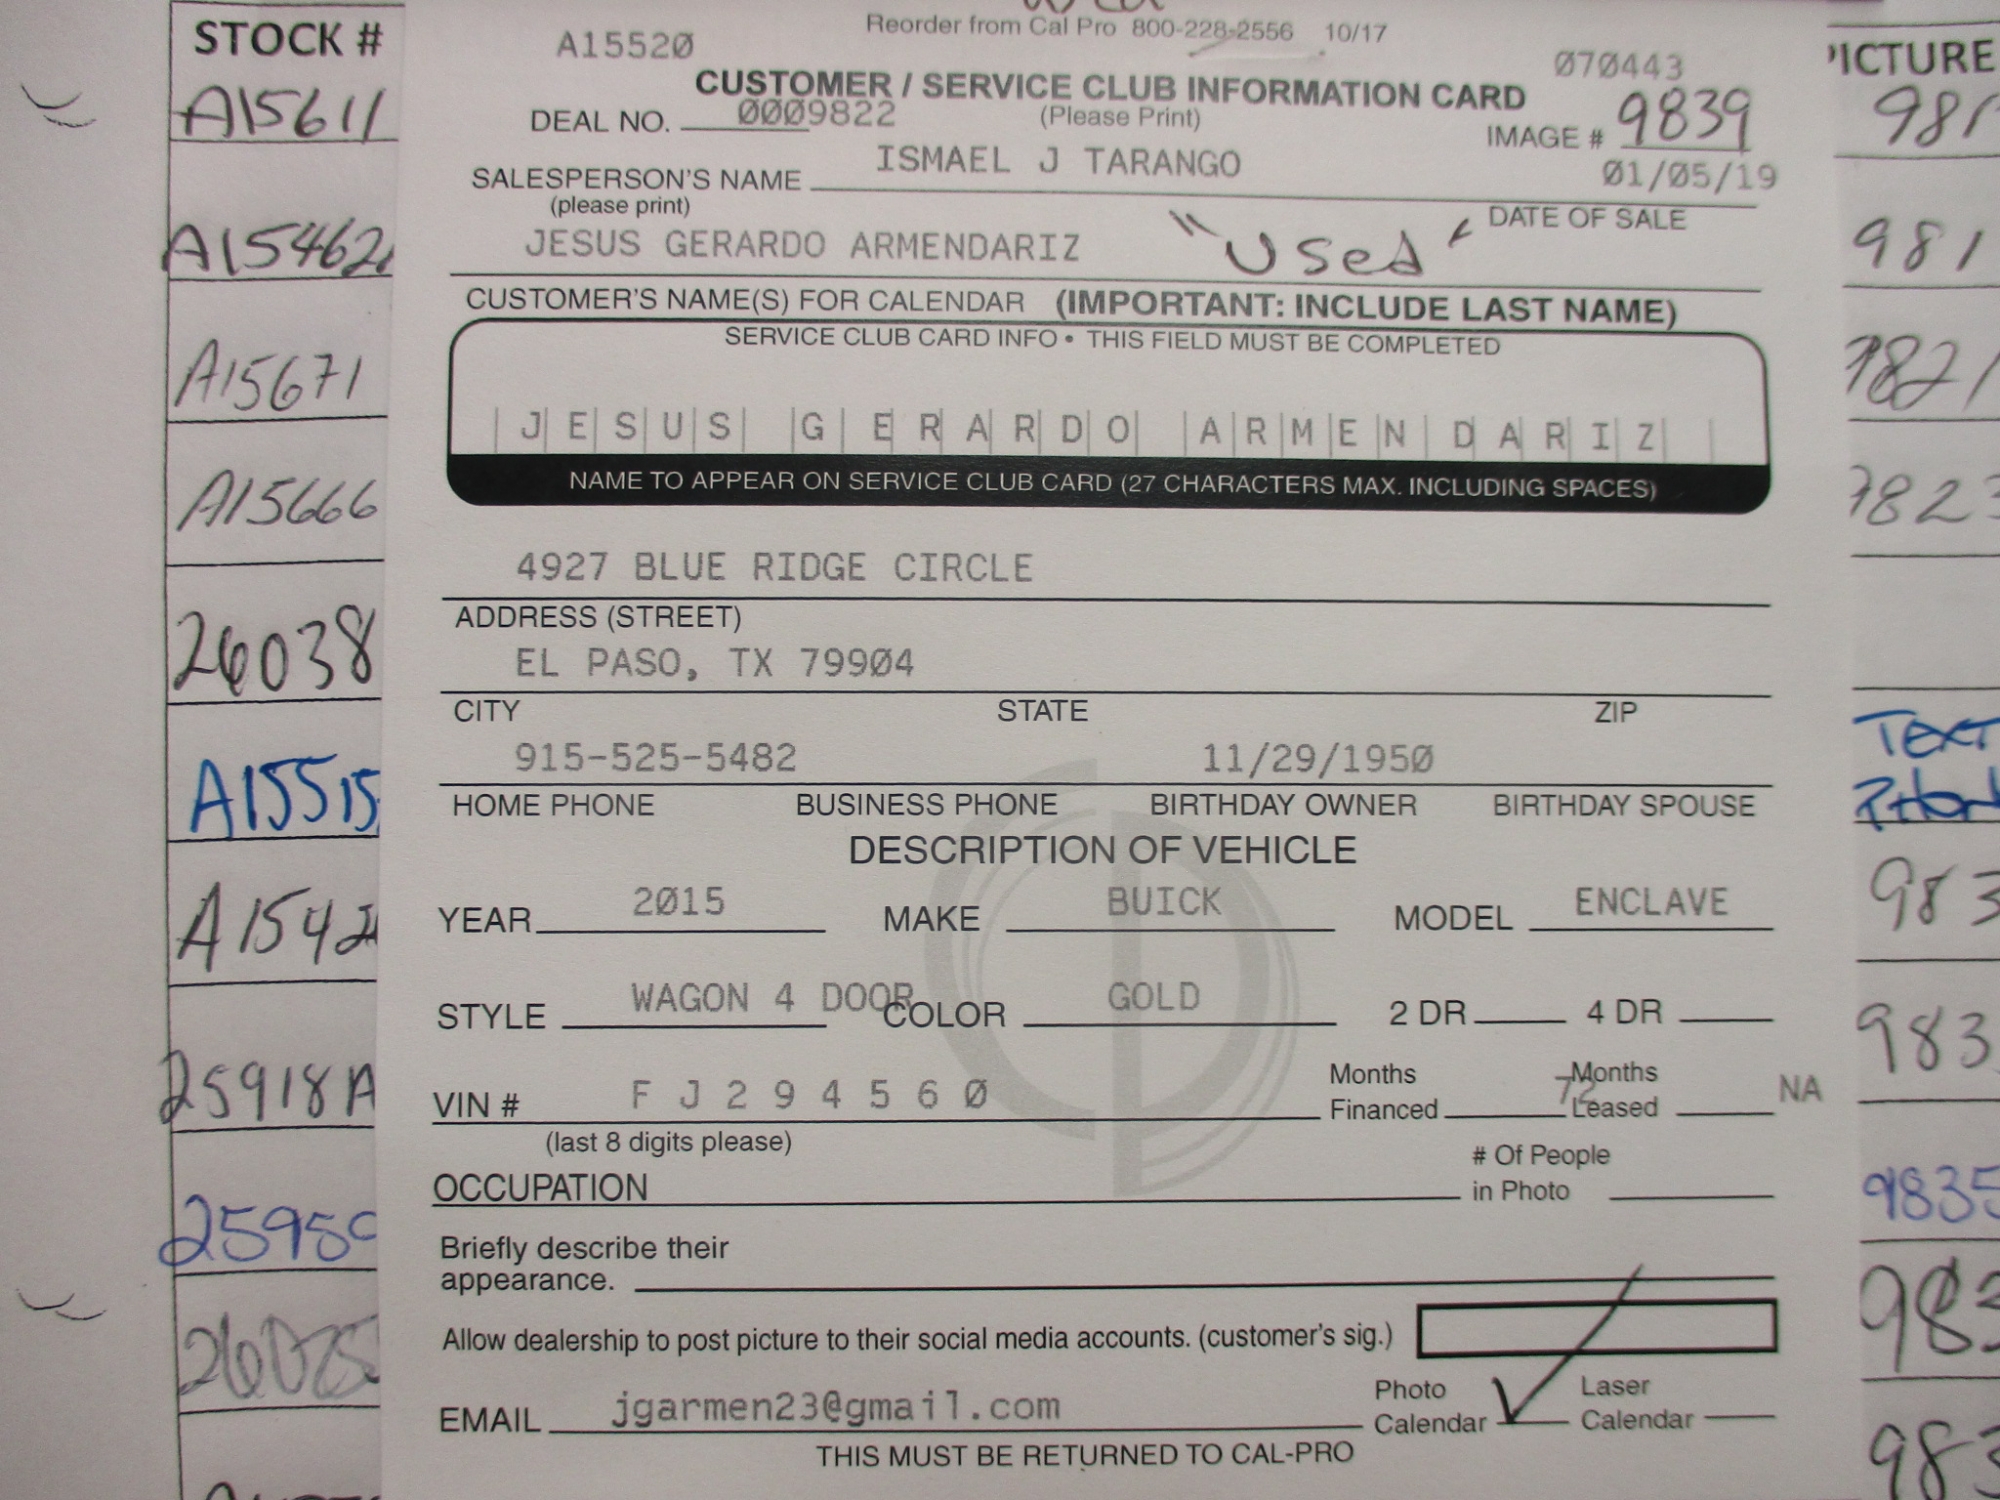 STOCK #
A15611
A15462
A15671
A15666
26038
A15515
A1542
25918A
2595
Reorder from Cal Pro 800-228-2556 10/17
A15520
070443
CUSTOMER / SERVICE CLUB INFORMATION CARD
DEAL NO. 0009822 (Please Print) IMAGE # 9839
SALESPERSON'S NAME ISMAEL J TARANGO 01/05/19
(please print) "Used" DATE OF SALE
JESUS GERARDO ARMENDARIZ
CUSTOMER'S NAME(S) FOR CALENDAR (IMPORTANT: INCLUDE LAST NAME)
SERVICE CLUB CARD INFO • THIS FIELD MUST BE COMPLETED
JESUS GERARDO ARMENDARIZ
NAME TO APPEAR ON SERVICE CLUB CARD (27 CHARACTERS MAX. INCLUDING SPACES)
4927 BLUE RIDGE CIRCLE
ADDRESS (STREET)
EL PASO, TX 79904
CITY STATE ZIP
915-525-5482 11/29/1950
HOME PHONE BUSINESS PHONE BIRTHDAY OWNER BIRTHDAY SPOUSE
DESCRIPTION OF VEHICLE
YEAR 2015 MAKE BUICK MODEL ENCLAVE
STYLE WAGON 4 DOOR COLOR GOLD 2 DR 4 DR
VIN # F J 2 9 4 5 6 0 Months Financed 72 Months Leased NA
(last 8 digits please)
OCCUPATION # Of People in Photo
Briefly describe their
appearance.
Allow dealership to post picture to their social media accounts. (customer's sig.)
EMAIL jgarmen23@gmail.com Photo Calendar ✓ Laser Calendar
THIS MUST BE RETURNED TO CAL-PRO
PICTURE
981
981
9821
9823
Text
983
983
9835
983
983